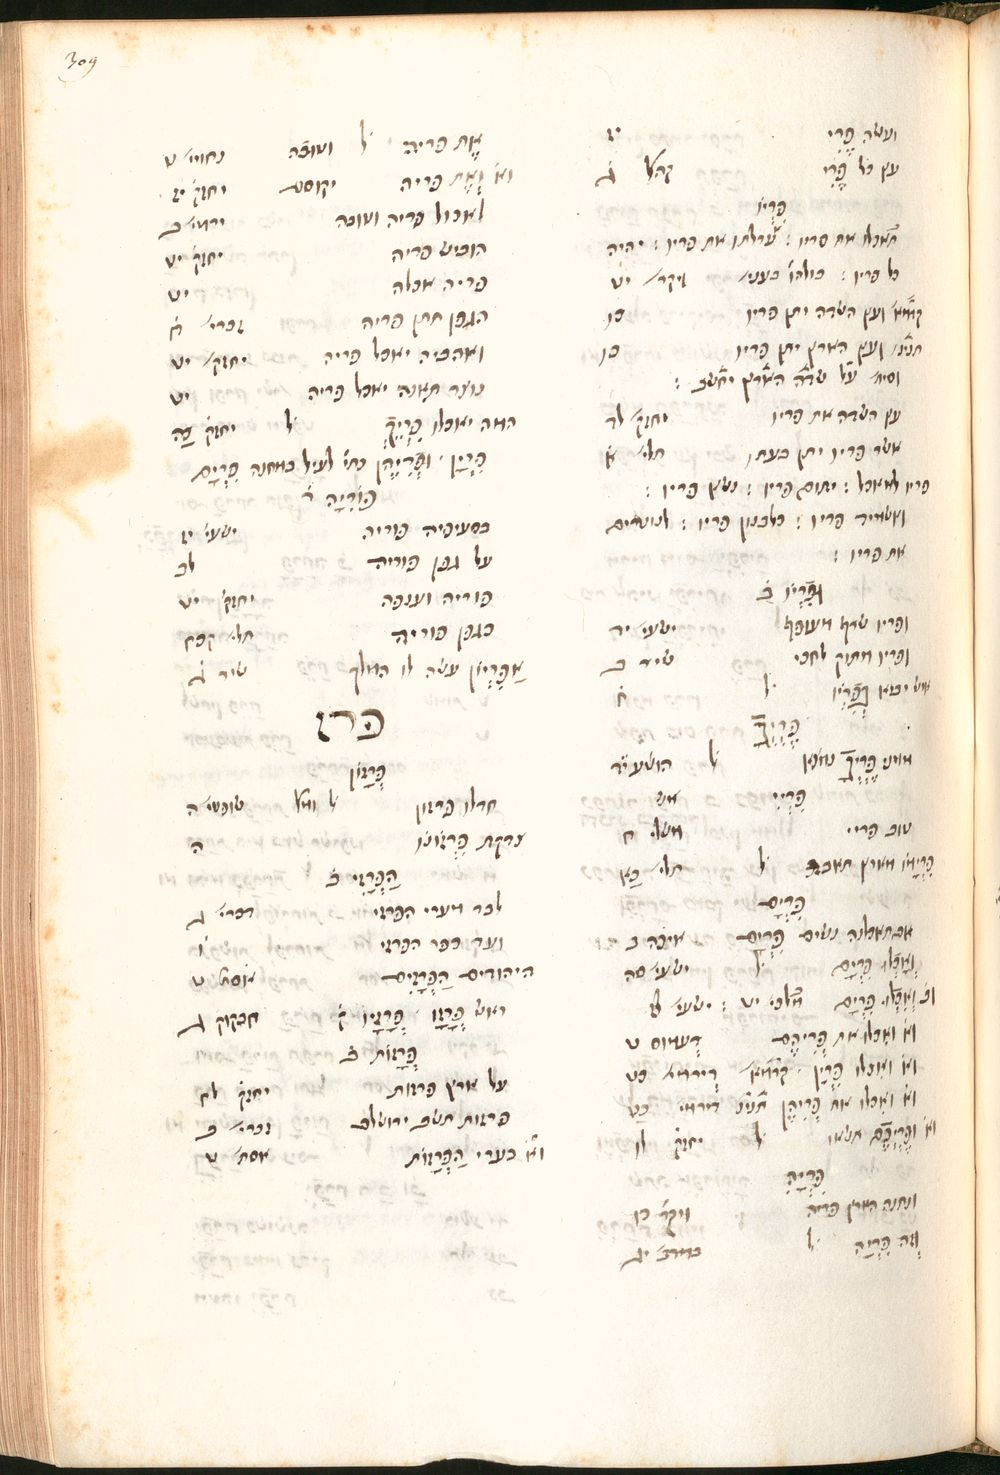 309
ועשה פְּרִי יז
עץ כל פֶּרִי קהל ב
פִּרְיוֹ
תאכלו את פריו : ערלתו את פריו : יהיה
כל פריו : כולהו בענין ויקר׳ יט
קדמא׳ ועץ השדה יתן פריו כו
תנינ׳ ועץ הארץ יתן פריו כו
וסי׳ על שדה הארץ יחשב :
עץ השדה את פריו יחזק׳ לד
אשר פריו יתן בעתו תלי׳ א
פריו למאכל : יתום פריו : נשץ פריו :
ואשמיד פריו : כלבנון פריו : לנוטרים
את פריו :
וּפִרְיוֹ ב
ופריו שרף מעופף ישעי׳ יד
ופריו מתוק לחכי שיר ב
איש יביא בְּפִרְיוֹ ל ח
פֶּרְיְךָ
ממני פֶּרְיְךָ נמצא ל הושע יד
פִּרְיִי
טוב פריי משלי ח
פִּרְיָמוֹ מארץ תאבד ל תלי׳ כא
פִּרְיָם
אם תאכלנה נשים פִּרְיָם איכה ב
וְאָכְלוּ פִּרְיָם ל ישעי׳ סה
וב׳ וְאִכְלוּ פִּרְיָם מלכי׳ יט : ישעי׳ לז
וא׳ ואכלו את פְּרִיהֶם דעמוס ט
וא׳ ואכלו פִּרְיָן קדמא׳ דירמי׳ כט
וא׳ ואכלו את פִּרְיָן תנינ׳ דירמי׳ כט
וא׳ וּפֶרְיְכֶם תשאו ל יחזק׳ לו
פִּרְיָהּ
ונתנה הארץ פריה ויקר׳ כו
וְזֶה פִּרְיָהּ ל במדב׳ יג
אֶת פריה ל ושובה נחמי׳ ט
וא׳ וְאֶת פריה יקוסס יחזק׳ יז
לאכול פריה וטובה ירמי׳ ב
הוביש פריה יחזק׳ יט
פריה אכלה יט
הגפן תתן פריה זכרי׳ ח
נוצר תאנה יאכל פריה
המה יאכלו פִּרְיֵךְ ל יחזק׳ כה
פּוֹרִיָּה ד
בסעיפיה פוריה ישעי׳ יז
על גפן פוריה לב
פוריה וענפה יחזק׳ יט
כגפן פוריה תלי׳ קכח
אַפִּרְיוֹן עשה לו המלך שיר ג
פרז
פְּרָזוֹן
חדלו פרזון שופטי׳ ה
צדקת פִּרְזוֹנוֹ ה
הַפְּרָזִי ב
לבד מערי הפרזי דברי׳ ג
ועד כפר הפרזי
היהודים הַפְּרָזִים אסת׳ ט
ראש פְּרָזָו פְּרָזָיו ק׳ חבקוק ג
פְּרָזוֹת ב
על ארץ פרזות יחזק׳ לח
פרזות תשב ירושלם זכרי׳ ב
וא׳ בערי הַפְּרָזוֹת אסת׳ ט